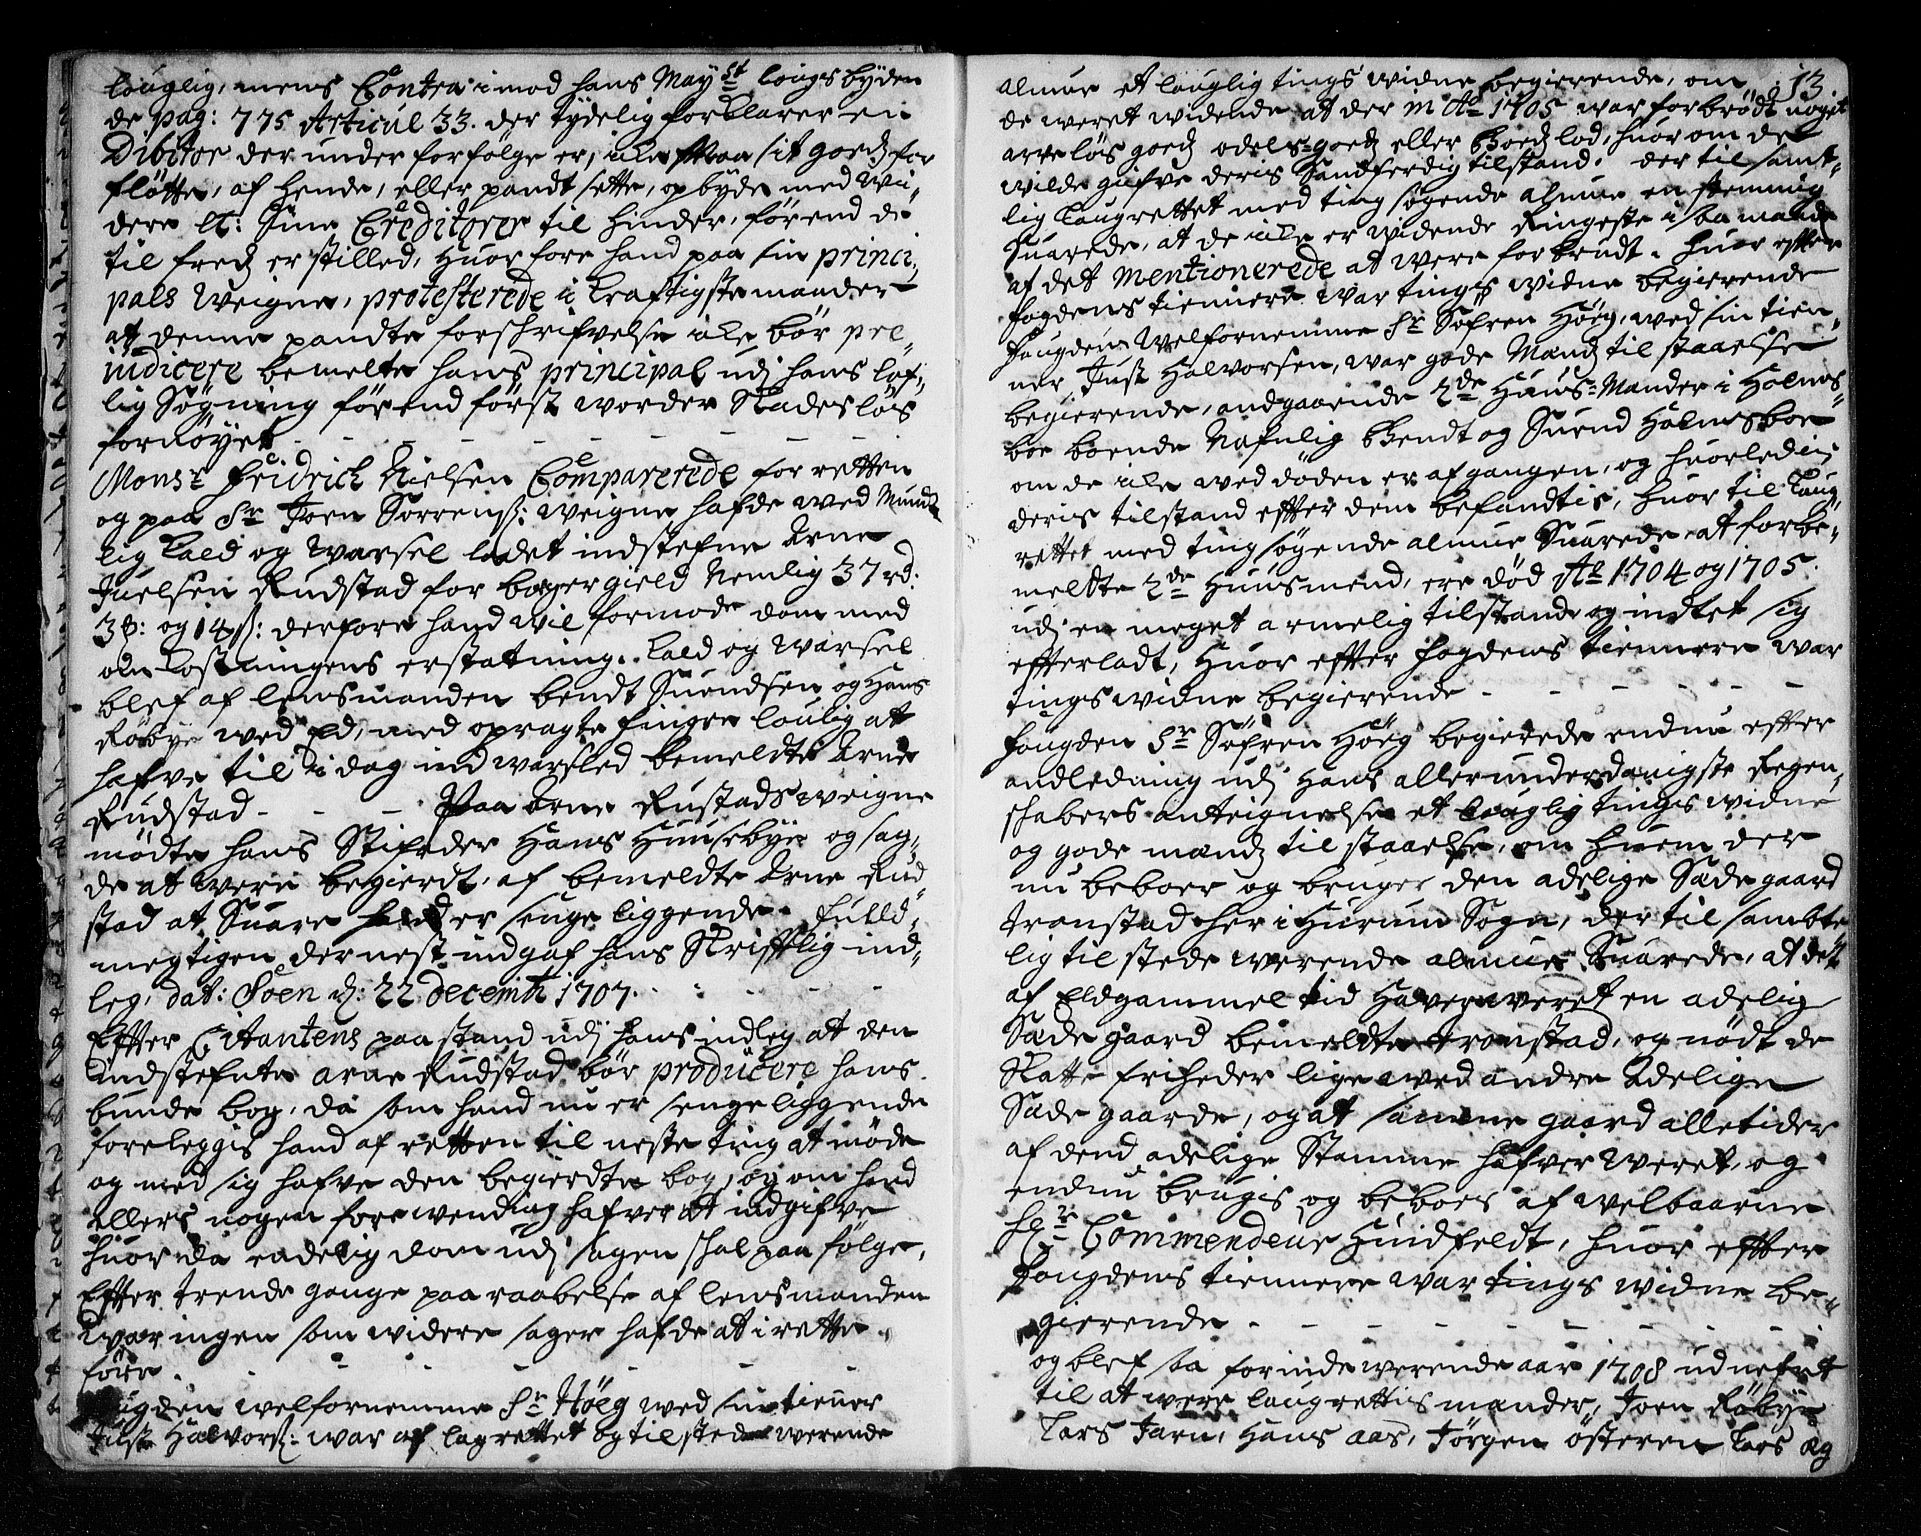 louglig, mens Contra imod hans May st lougs byden
de pag: 775 Articul 33. der tydelig forklarer en
Dibitor der under forfølge er, icke maa sit goeds for
fløtte, af hende, eller pandt sette, opbyde med wi„
dere etc: sine Creditorer til hinder, førend de
til freds er stilled, huor fore hand paa sin princi„
pals weigne, protesterede i kraftigste maader
at denne pandte forschrifvelse icke bør pre„
judicere bemelte hans principal udj hans lof„
lig Søgning førend først worder skadesløs
fornøyet
Mons r Fridrich Nielsen Comparerede for retten
og paa Sr Joen Sørrens: weigne hafde med Mundt
lig kald og warsel ladet indstefne Arne
Juelsen Rudstad for bøyer gield Nemlig 37 rd:
3 : og 14 s: derfore hand wil formode dom med
om kostningens erstatning. kald og warsel
blef af lensmanden bendt Suendsen og Hans
Røbye wed Ed, med opragte finger loulig at
hafve til i dag ind warsled bemeldte Arne
Rudstad - - - Paa Arne Rustads weigne
mødte hans Stifader Hans Hunsebye og sag„
de at were begierdt, af bemeldte Arne Rud„
stad at Suare hand er senge liggende. Fuld„
megtigen dernest indgaf hans Skrifftlig ind„
leg, dat: Soen d: 22 decemb 1707.
Effter Citantens paastand udj hans indleg at den
indstefnte Arne Rudstad bør producere hans
bunde bog, da som hand nu er senge liggende
foreleggis hand af retten til neste ting at møde
og med sig hafve den begierdte bog, og om hand
ellers nogen forewending hafver at indgifve
huor da endelig dom udj sagen schal paa følge,
Effter trende gange paa raabelse af lensmanden
war ingen som widere sager hafde at i rette
føre.
ugden welfornemme Sr Høeg wed sin tiener
Just Halvors: war af lagrettet og tilstede werende
13
almue et louglig tings widne begierende, om
de weret widende at der in Ao 1705 war forbrødt noget
arveløs goeds odels-goeds eller boeds lod, huor om de
wilde gifve deris Sandferdig tilstand. der til samt„
lig laugrettet med ting søgende almue en stemmig
Suarede, at de icke er widende Ringeste i saa maade
af det mentionerede at were forbrudt. huor effter
fogdens tiennere war tings widne begierende
Fougdens Welfornemme Sr Søfren Høeg, wed sin tien„
ner Just Halvorsen, war gode Mands til staaelse
begierende, andgaaende 2 de Huus-Mænder i Holms„
boe boende Nafnlig Bendt og Suend Holmsboe
om de icke wed døden er afgangen, og huorledis
deris tilstand effter dem befandtis, huor til Laug„
rettet med ting søgende almue Suarede, at forbe„
meldte 2 de Huusmend, ere død Ao 1704 og 1705.
udj en meget armelig tilstand og indtet sig
effterladt, Huor effter fogdens tiennere war
tings widne begierende - - - - -
Fougden Sr Søfren Høeg begierede endnu effter
andledning udj Hans allerunderdanigste Regen„
schabers antegnelser et louglig tings widne
og gode mands til staaelse, om huem der
nu beboer og bruger den adelige Sædegaard
Tronstad her i Hurum Sogn, der til sambt„
lig tilstede werende almue Suarede, at det
af Eldgammel tid Hafver weret en adelig
Sæde gaard bemeldte Tronstad, og nødt de
Skatte friheder lige wed andre Adelige
Sæde gaarde, og at samme gaard alletider
af dend adelige Stamme hafver weret, og
endnu brugis og beboes af welbaarne
Hr Commendeur Huidfeldt, huor effter
Fougdens tiennere war tings widne be„
gierende - - - - -
og blef saa for indewerende aar 1708 udnefnt
til at were laugrettis mænder, Joen Røbye
Lars Jarn, Hans Aas, Jørgen Østeren Lars Æg